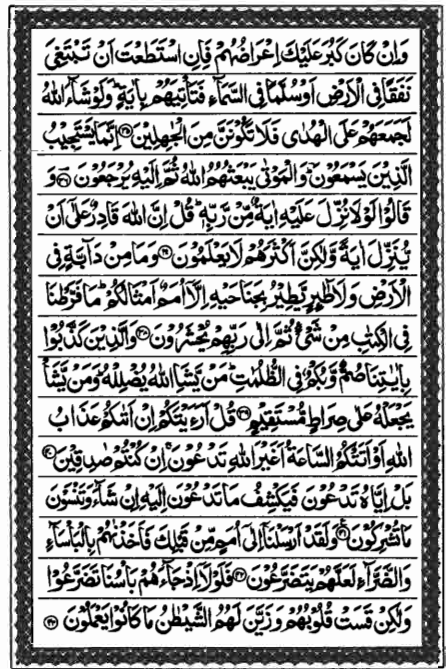 وَاِنْ كَانَ كَبُرَ عَلَيْكَ اِعْرَاضُهُمْ فَاِنِ اسْتَطَعْتَ اَنْ تَبْتَغِیَ
نَفَقًا فِی الْاَرْضِ اَوْ سُلَّمًا فِی السَّمَآءِ فَتَاْتِیَهُمْ بِاٰیَةٍ ؕ وَلَوْ شَآءَ اللّٰهُ
لَجَمَعَهُمْ عَلَی الْهُدٰی فَلَا تَكُوْنَنَّ مِنَ الْجٰهِلِیْنَ ﴿۳۵﴾ اِنَّمَا یَسْتَجِیْبُ
الَّذِیْنَ یَسْمَعُوْنَ ؔؕ وَالْمَوْتٰی یَبْعَثُهُمُ اللّٰهُ ثُمَّ اِلَیْهِ یُرْجَعُوْنَ ﴿۳۶﴾ وَ
قَالُوْا لَوْلَا نُزِّلَ عَلَیْهِ اٰیَةٌ مِّنْ رَّبِّهٖ ؕ قُلْ اِنَّ اللّٰهَ قَادِرٌ عَلٰۤی اَنْ
یُّنَزِّلَ اٰیَةً وَّلٰكِنَّ اَكْثَرَهُمْ لَا یَعْلَمُوْنَ ﴿۳۷﴾ وَمَا مِنْ دَآبَّةٍ فِی
الْاَرْضِ وَلَا طٰٓئِرٍ یَّطِیْرُ بِجَنَاحَیْهِ اِلَّاۤ اُمَمٌ اَمْثَالُكُمْ ؕ مَا فَرَّطْنَا
فِی الْكِتٰبِ مِنْ شَیْءٍ ثُمَّ اِلٰی رَبِّهِمْ یُحْشَرُوْنَ ﴿۳۸﴾ وَالَّذِیْنَ كَذَّبُوْا
بِاٰیٰتِنَا صُمٌّ وَّبُكْمٌ فِی الظُّلُمٰتِ ؕ مَنْ یَّشَاِ اللّٰهُ یُضْلِلْهُ ؕ وَمَنْ یَّشَاْ
یَجْعَلْهُ عَلٰی صِرَاطٍ مُّسْتَقِیْمٍ ﴿۳۹﴾ قُلْ اَرَءَیْتَكُمْ اِنْ اَتٰىكُمْ عَذَابُ
اللّٰهِ اَوْ اَتَتْكُمُ السَّاعَةُ اَغَیْرَ اللّٰهِ تَدْعُوْنَ ۚ اِنْ كُنْتُمْ صٰدِقِیْنَ ﴿۴۰﴾
بَلْ اِیَّاهُ تَدْعُوْنَ فَیَكْشِفُ مَا تَدْعُوْنَ اِلَیْهِ اِنْ شَآءَ وَتَنْسَوْنَ
مَا تُشْرِكُوْنَ ﴿۴۱﴾ وَلَقَدْ اَرْسَلْنَاۤ اِلٰۤی اُمَمٍ مِّنْ قَبْلِكَ فَاَخَذْنٰهُمْ بِالْبَاْسَآءِ
وَالضَّرَّآءِ لَعَلَّهُمْ یَتَضَرَّعُوْنَ ﴿۴۲﴾ فَلَوْلَاۤ اِذْ جَآءَهُمْ بَاْسُنَا تَضَرَّعُوْا
وَلٰكِنْ قَسَتْ قُلُوْبُهُمْ وَزَیَّنَ لَهُمُ الشَّیْطٰنُ مَا كَانُوْا یَعْمَلُوْنَ ﴿۴۳﴾